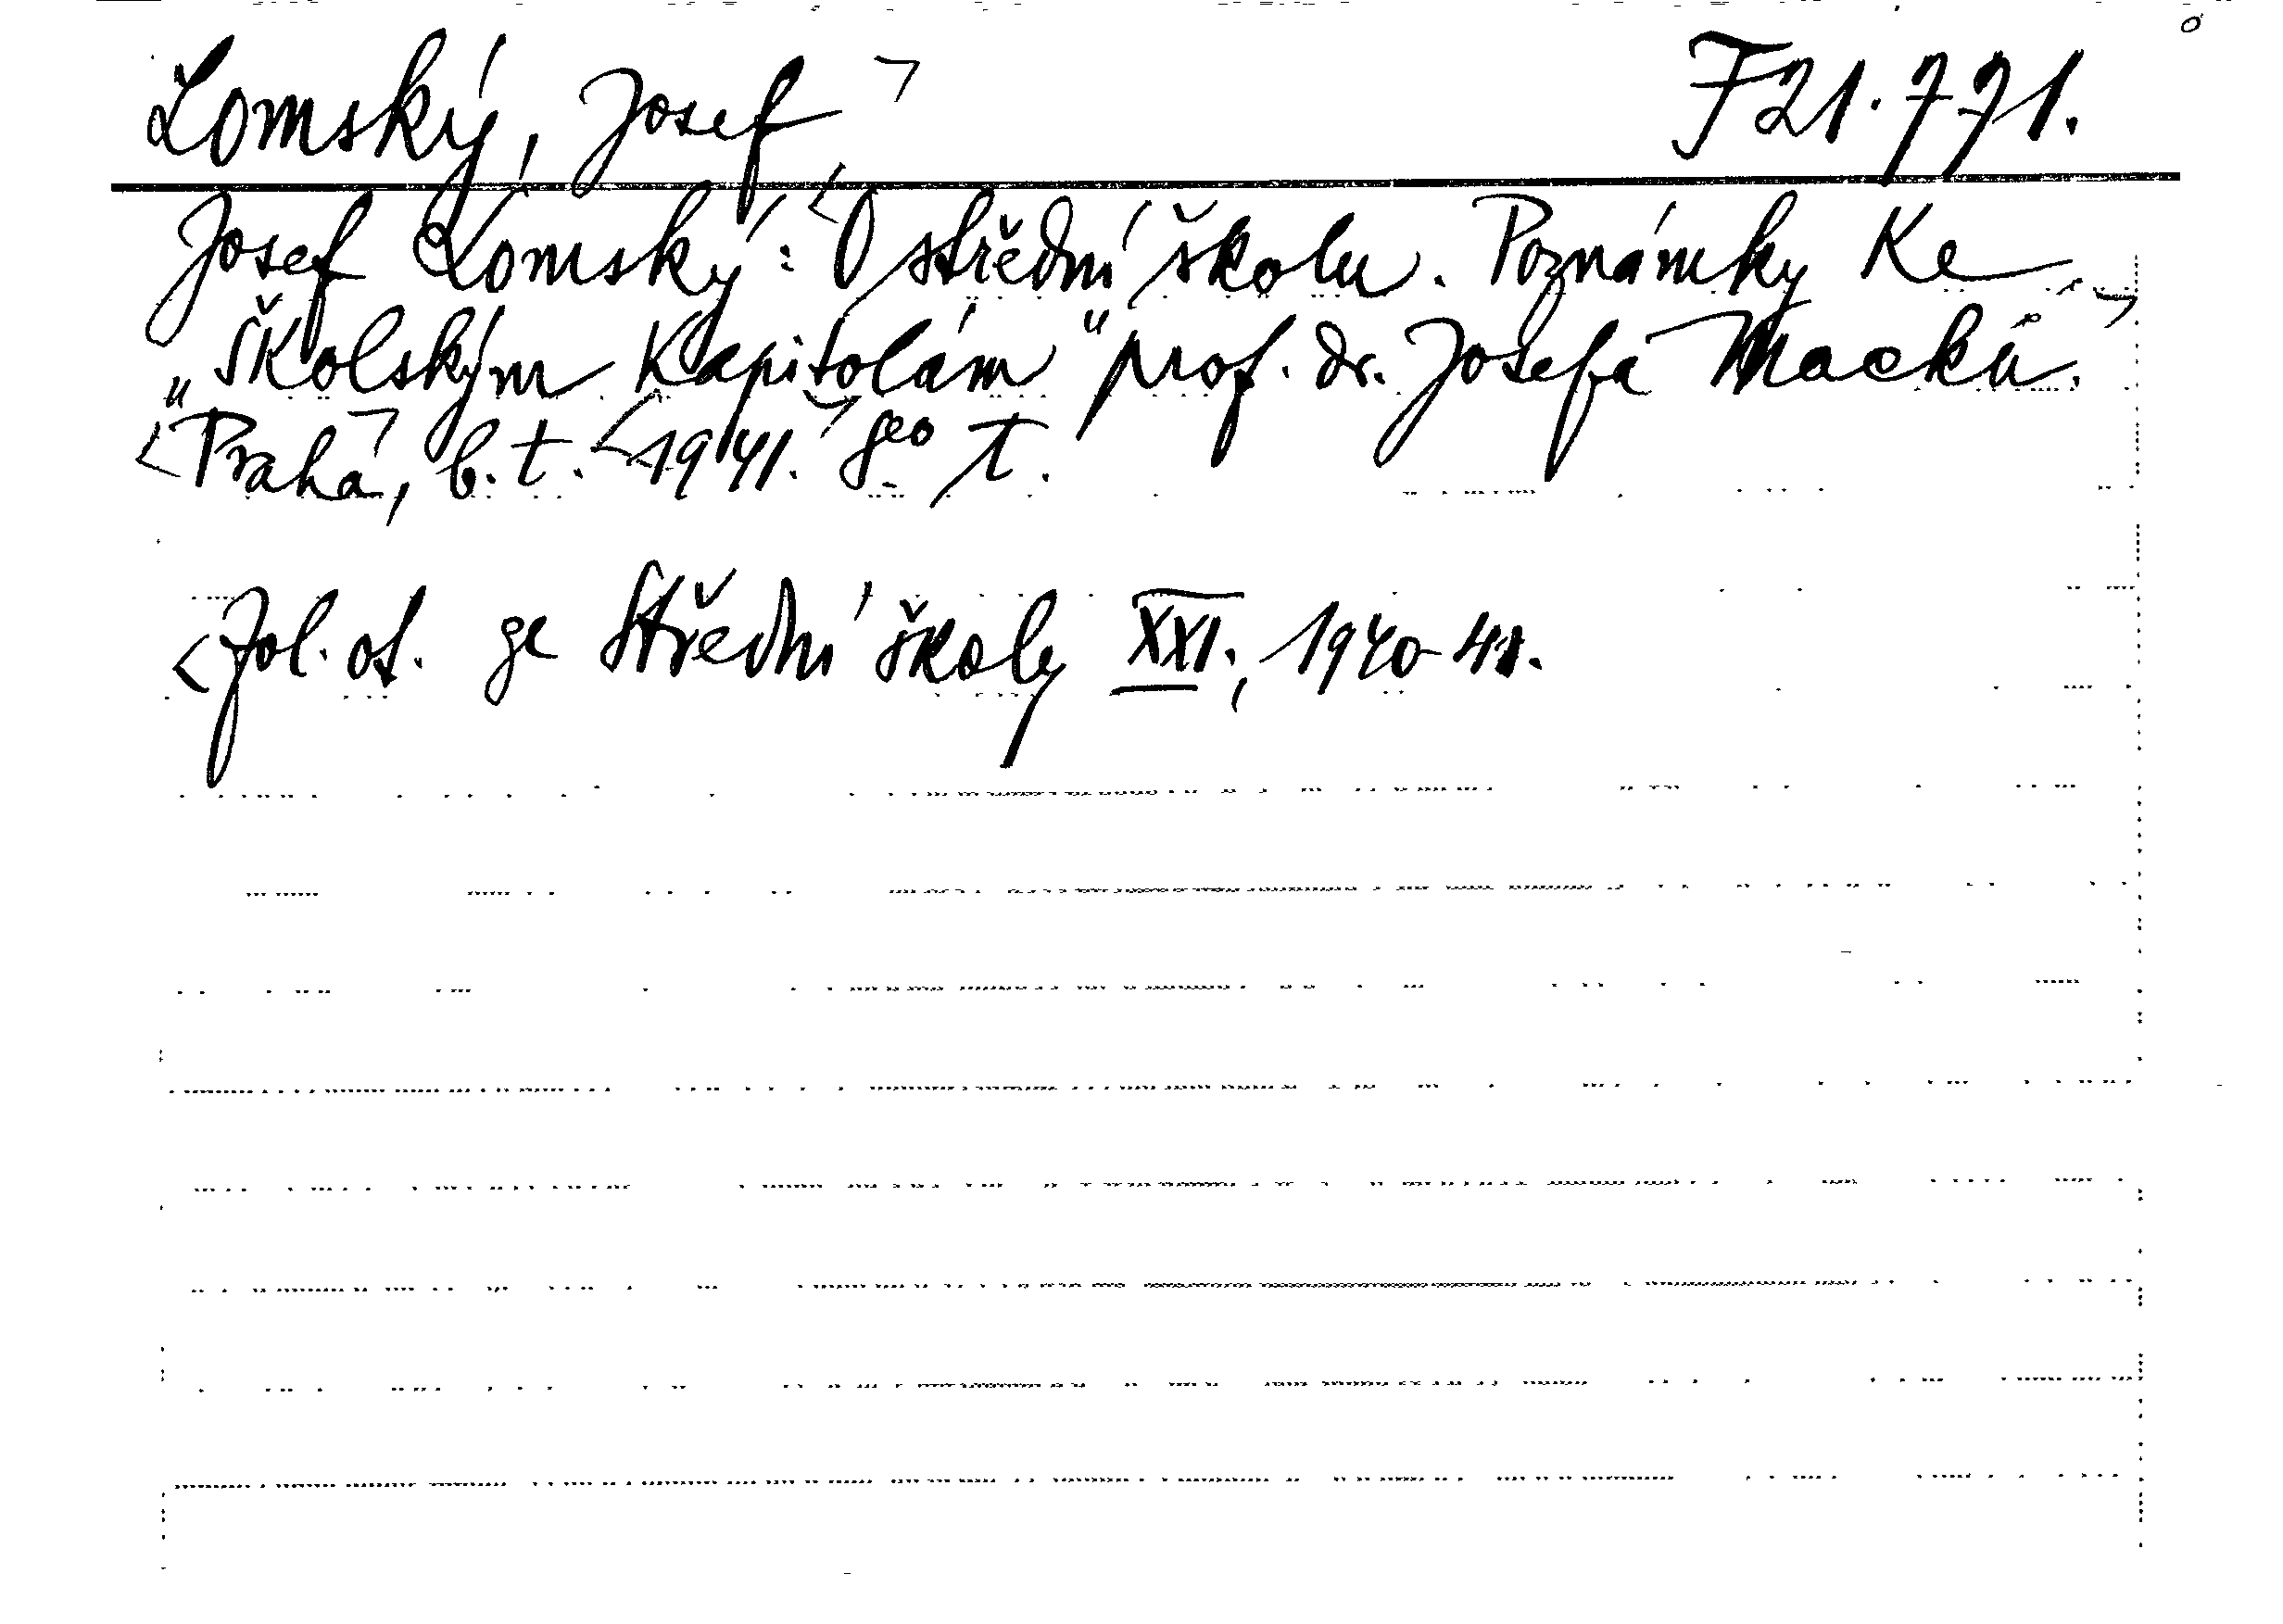 Lomský, Josef ¬ F 21.771.
Josef Lomský: <O střední školu. Poznámky ke
„školským kapitolám" prof. dr. Josefa Macků.¬
<Praha¬, b. t. <1941.¬ 8° T.
<Zvl. ot. ze Střední školy XXI., 1940-41.